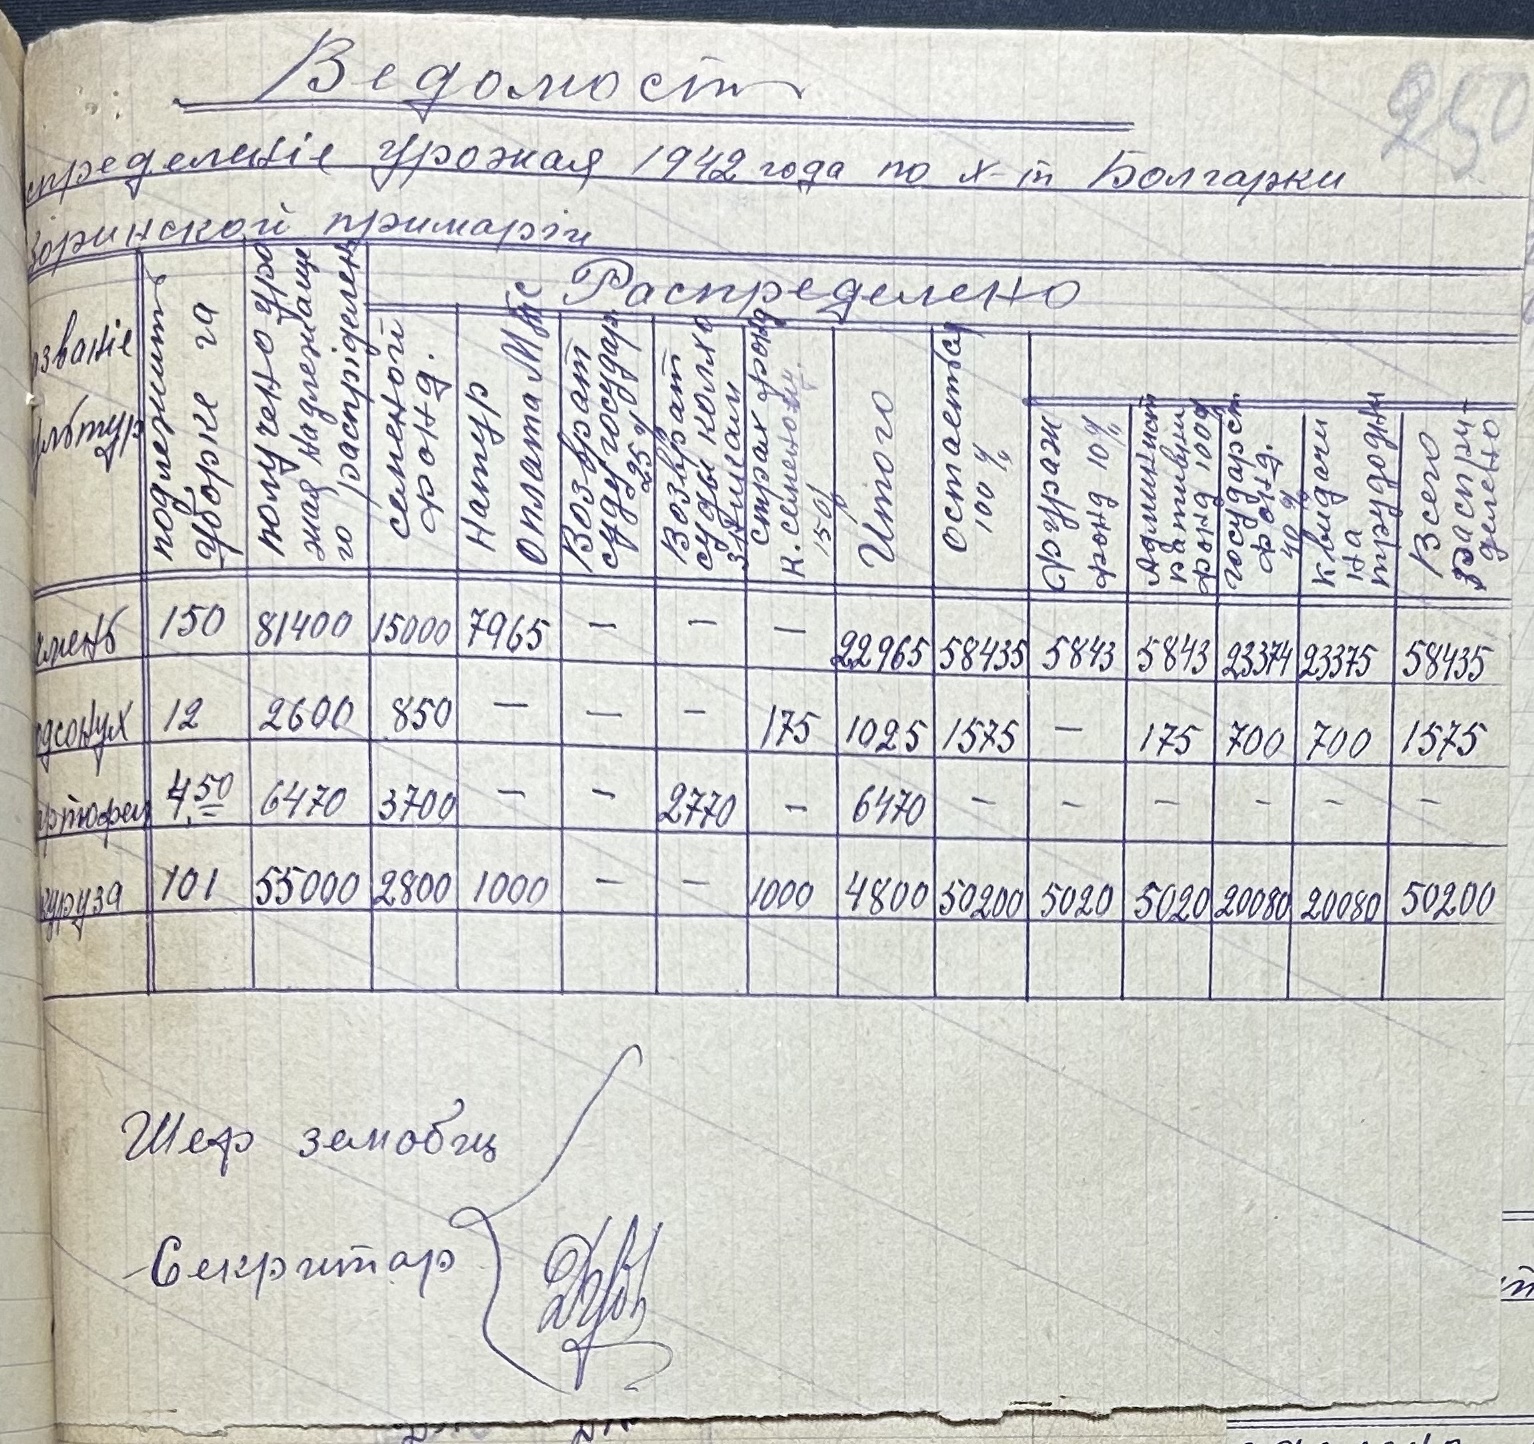 Ведомост
250
спределеніе урожая 1942 года по х-тв Болгарки
Зоринской примаріи
Распределено
азваніе
ультур
подлежит уборке га
получено уро
жая надлежаще
го распріделен
семеной
фонд.
Натур
Оплата Мтс
Возврат
суду государ
25%
Возврат
суды колхо
страх фонд
к. семеной
15%
Итого
остаеться
100%
Фураж
фонд 10%
Админист
ративный
фонд 10%
государст
фонд.
40%
к видачи
на
трудодни
Всего
распри-
делено
чмень 150 81400 15000 7965 — — — 22965 58435 5843 5843 23374 23375 58435
одсонух 12 2600 850 — — — 175 1025 1575 — 175 700 700 1575
артофел 4,50 6470 3700 — — 2770 — 6470 — — — — — —
куруза 101 55000 2800 1000 — — 1000 4800 50200 5020 5020 20080 20080 50200
Шеф земобщ
Секритар